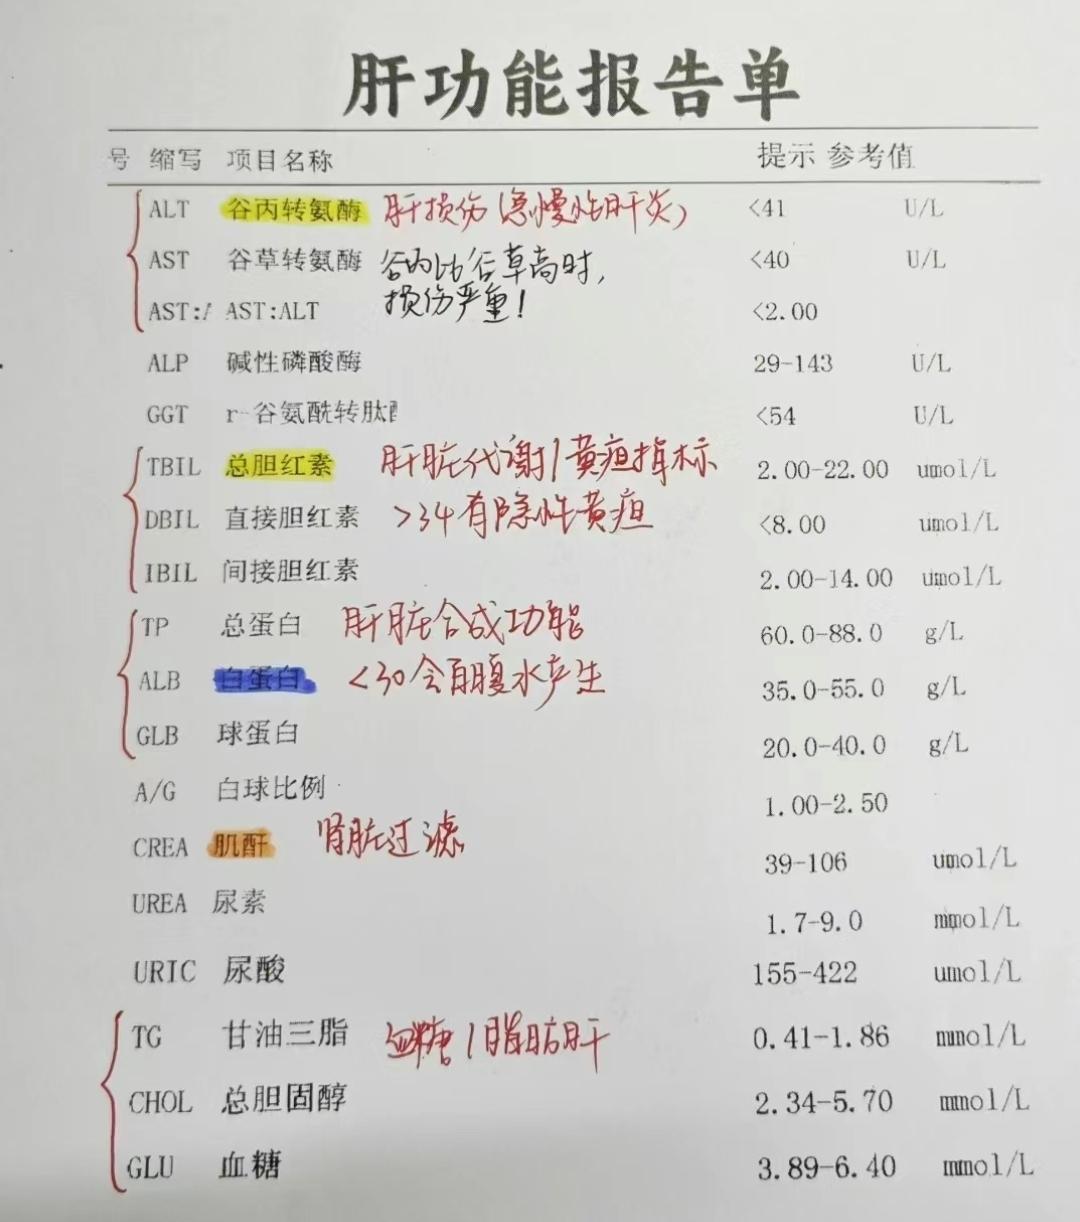 肝功能报告单
号 缩写 项目名称 提示 参考值
ALT 谷丙转氨酶 肝损伤(急慢性肝炎) <41 U/L
AST 谷草转氨酶 谷丙比谷草高时, <40 U/L
AST:A AST:ALT 损伤严重! <2.00
ALP 碱性磷酸酶 29-143 U/L
GGT r-谷氨酰转肽酶 <54 U/L
TBIL 总胆红素 肝脏代谢/黄疸指标 2.00-22.00 umol/L
DBIL 直接胆红素 >34有隐性黄疸 <8.00 umol/L
IBIL 间接胆红素 2.00-14.00 umol/L
TP 总蛋白 肝脏合成功能 60.0-88.0 g/L
ALB 白蛋白 <30会有腹水产生 35.0-55.0 g/L
GLB 球蛋白 20.0-40.0 g/L
A/G 白球比例 1.00-2.50
CREA 肌酐 肾脏过滤 39-106 umol/L
UREA 尿素 1.7-9.0 mmol/L
URIC 尿酸 155-422 umol/L
TG 甘油三脂 血糖/脂肪肝 0.41-1.86 mmol/L
CHOL 总胆固醇 2.34-5.70 mmol/L
GLU 血糖 3.89-6.40 mmol/L